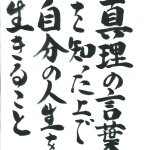 真理の言葉
を知た上で
自分の人生を
生きること